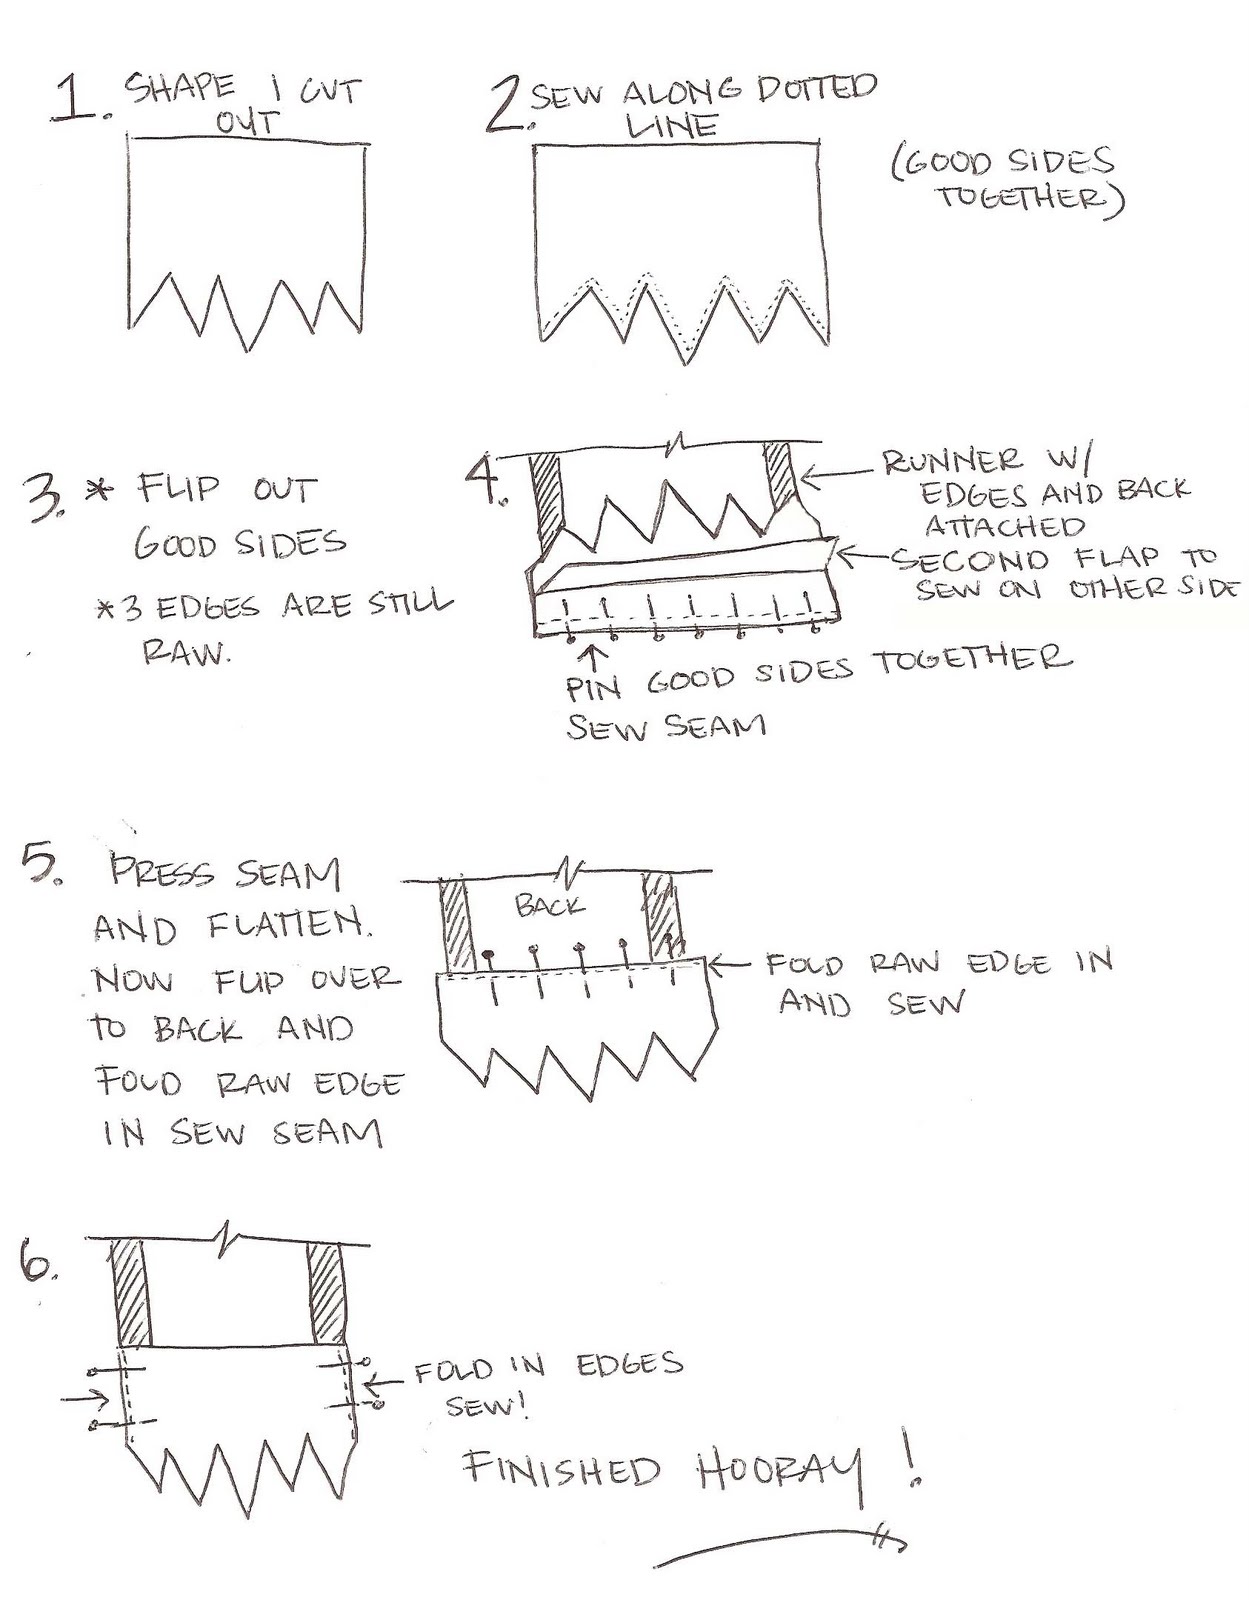 1. SHAPE I CUT
OUT
2. SEW ALONG DOTTED
LINE
(GOOD SIDES
TOGETHER)
3. * FLIP OUT
GOOD SIDES
*3 EDGES ARE STILL
RAW.
4.
RUNNER W/
EDGES AND BACK
ATTACHED
SECOND FLAP TO
SEW ON OTHER SIDE
PIN GOOD SIDES TOGETHER
SEW SEAM
5. PRESS SEAM
AND FLATTEN.
NOW FLIP OVER
TO BACK AND
FOLD RAW EDGE
IN SEW SEAM
BACK
FOLD RAW EDGE IN
AND SEW
6.
FOLD IN EDGES
SEW!
FINISHED HOORAY!